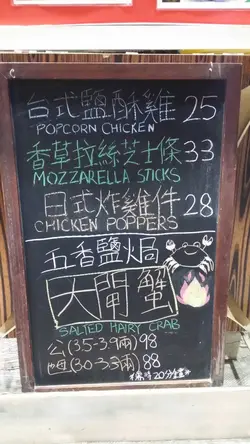 台式鹽酥雞 25
POPCORN CHICKEN
香草拉絲芝士條 33
MOZZARELLA STICKS
日式炸雞件 28
CHICKEN POPPERS
五香鹽焗
大閘蟹
SALTED HAIRY CRAB
公(3.5-3.9兩) 98
(3.0-3.3兩) 88
20分鐘